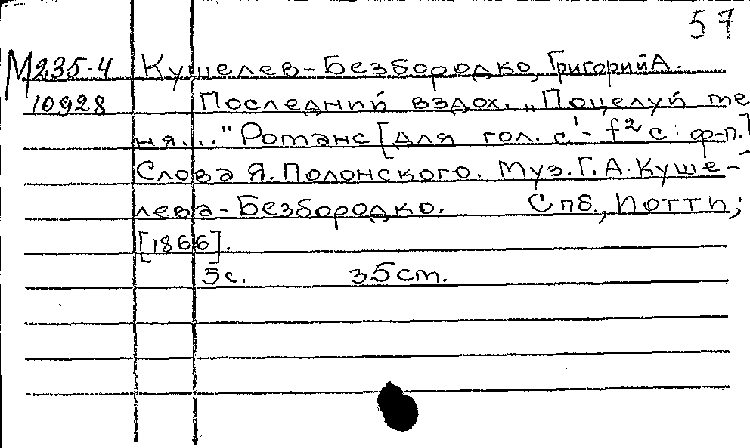 57
М235-4 Кушелев-Безбородко, Григорий А.
10928 Последний вздох. „Поцелуй ме-
ня...." Романс [для гол. c¹- f² с ф-п.]
Слова Я. Полонского. Муз. Г. А. Куше-
лева-Безбородко. Спб., Иотти,
[1866].
5с. 35см.